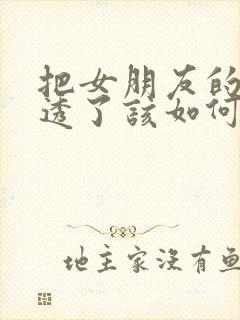 把女朋友的
透了该如何
地主家没有鱼